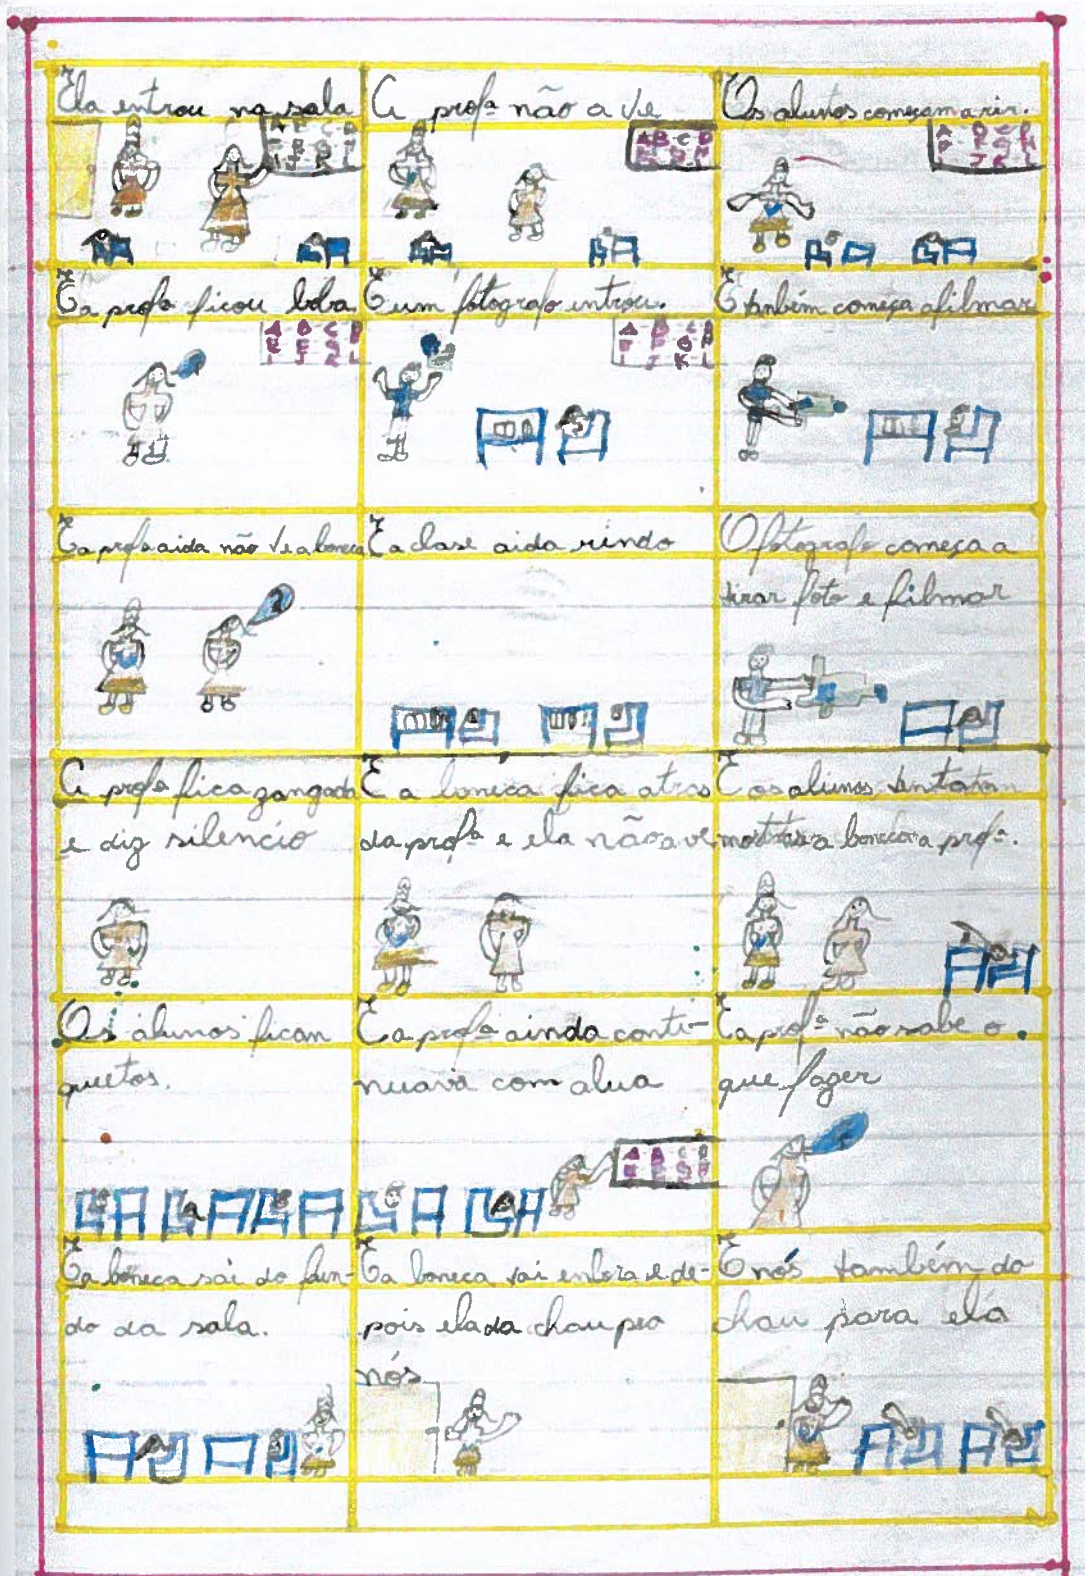 Ela entrou na sala
A profª não a ve
Os alunos começam a rir.
A B C D
E F G H
I J K L
E a profª ficou boba.
E um fotografo entrou.
E tanbém começa a filmar
A B C D
E F G H
I J K L
E a profª aida não ve a boneca
E a clase aida rindo
O fotografo começa a
tirar foto e filmar
A profª fica zangada
e diz silencio
E a boneca fica atras
da profª e ela não a ve
E os alunos tentam
mostrar a boneca a profª.
Os alunos fican
quetos.
E a profª ainda conti-
nuava com alua
A B C D
E F G H
E a profª não sabe o
que fazer
E a boneca sai do fun-
do da sala.
E a boneca vai enbora e de-
pois ela da chau pra
nós
E nós também da
chau para ela